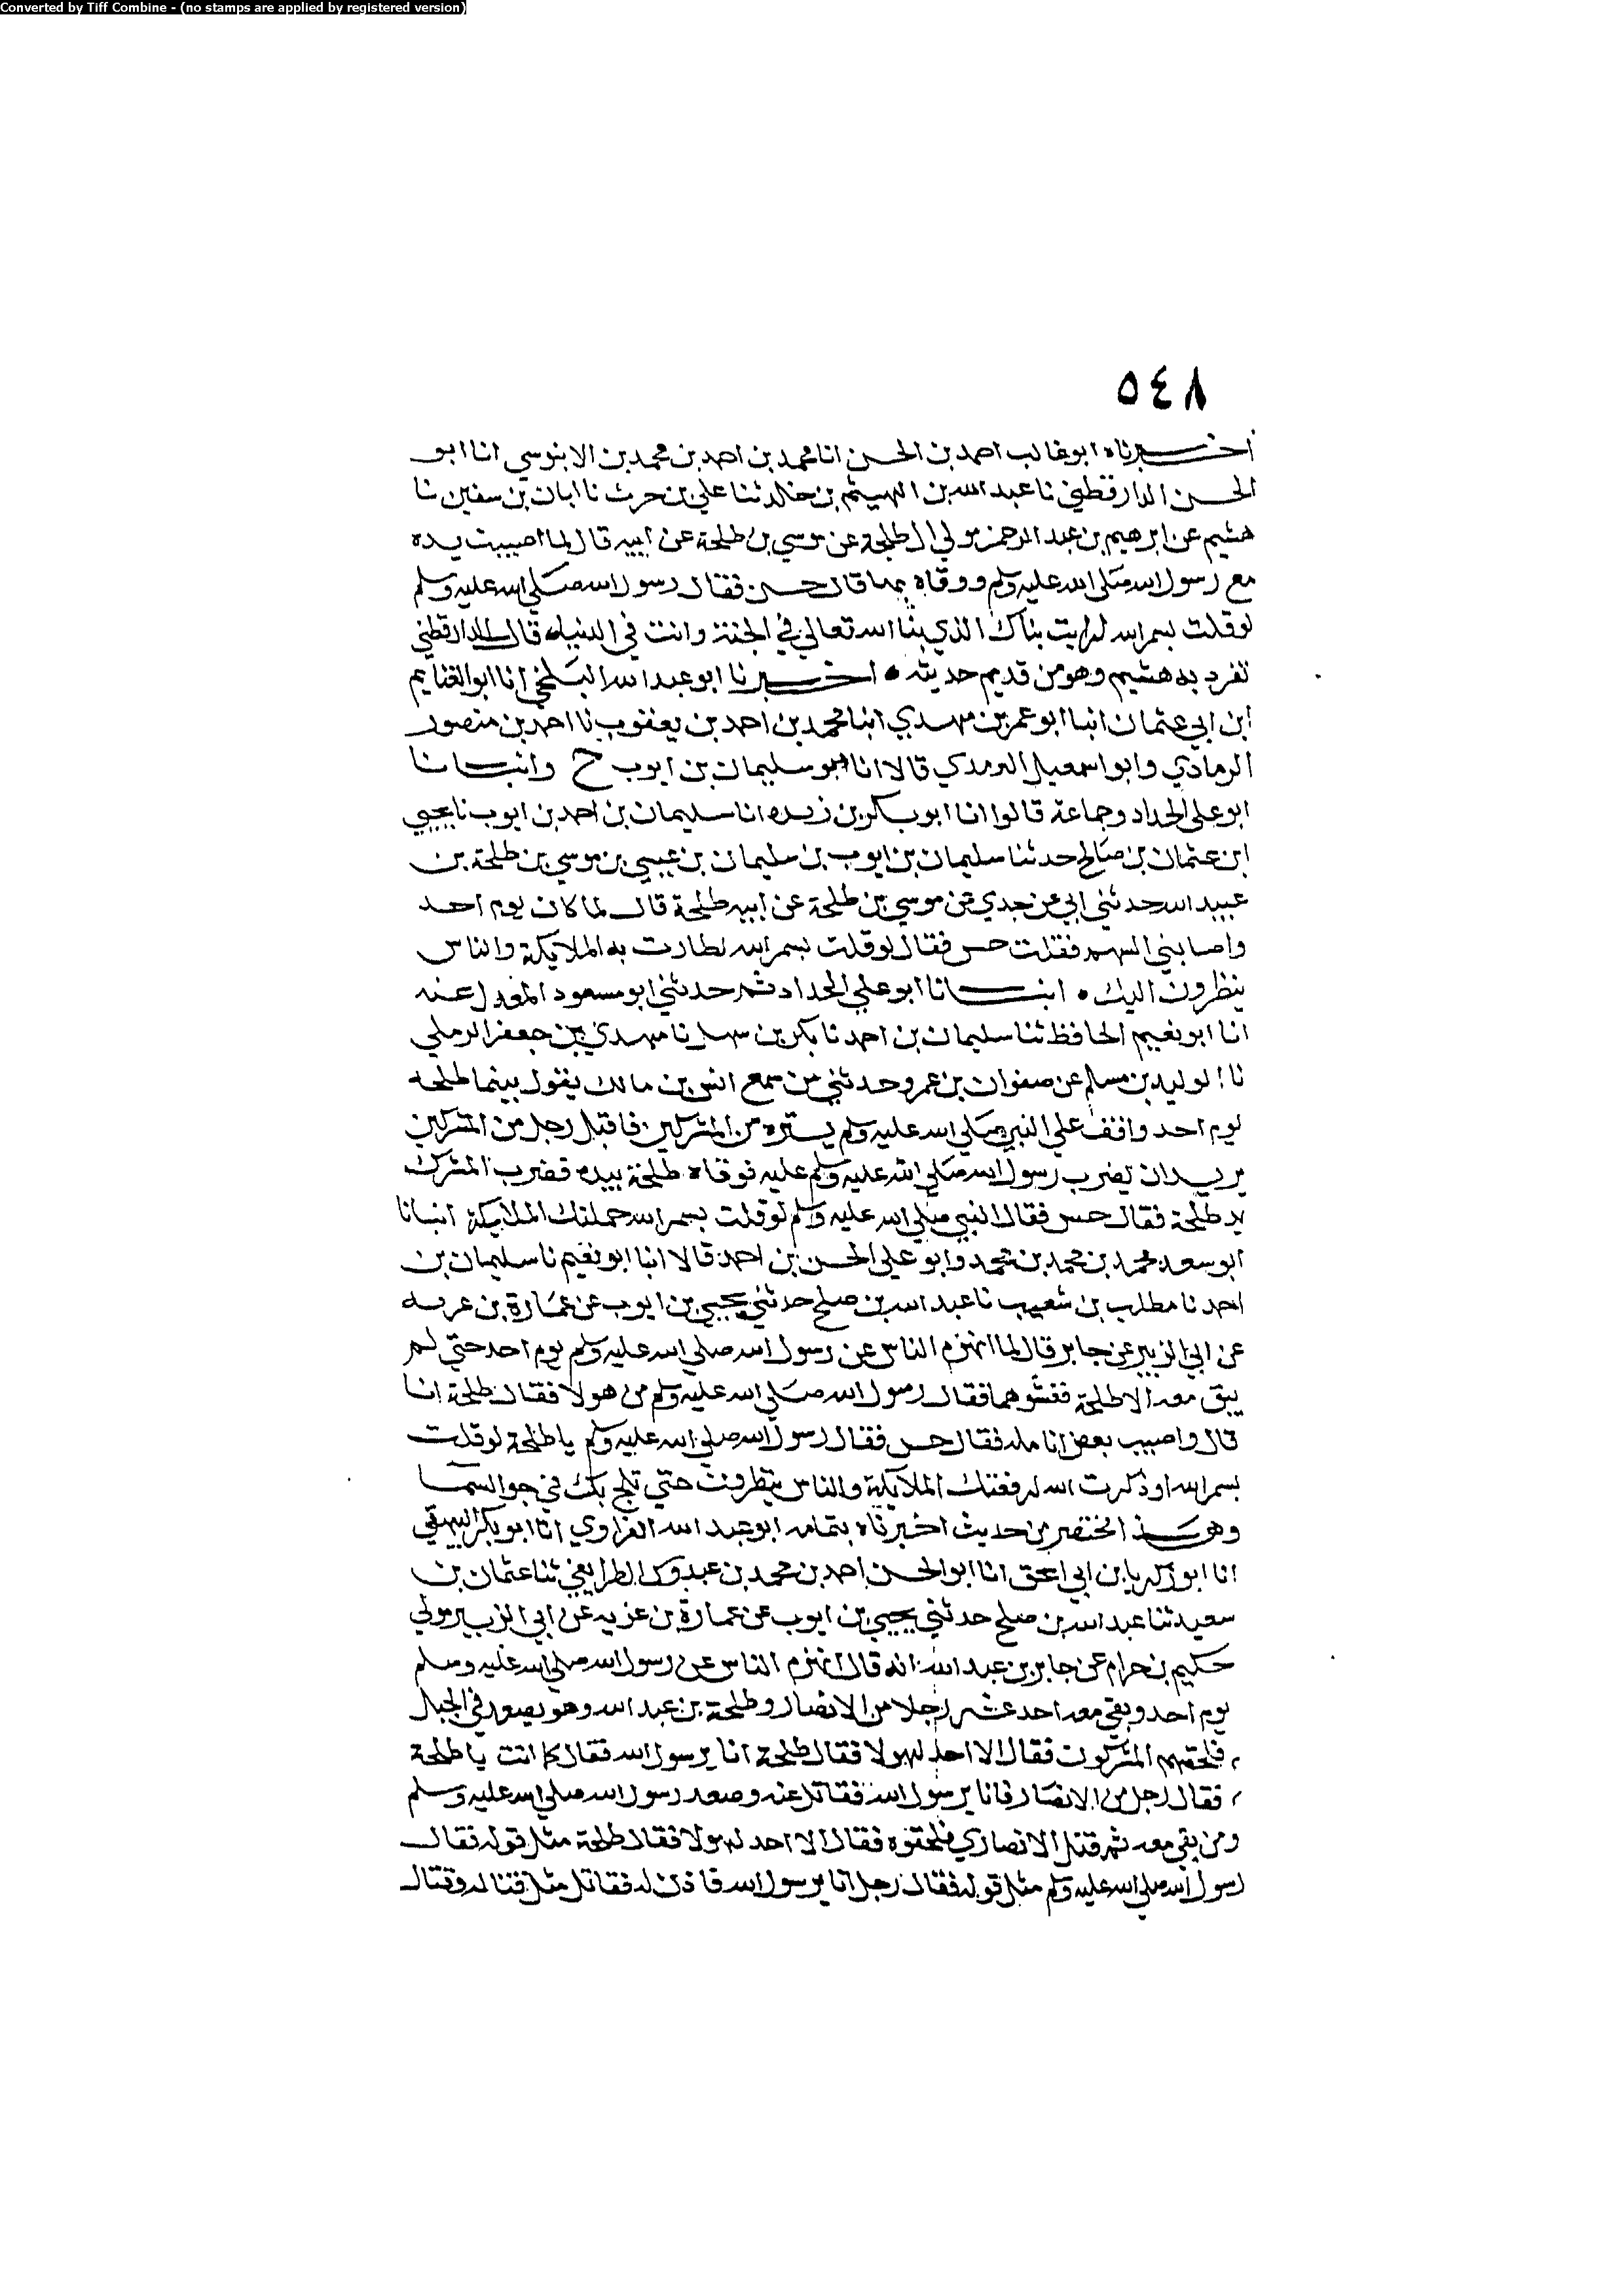 Converted by Tiff Combine - (no stamps are applied by registered version)
٥٤٨
اخبرناه ابو غالب احمد بن الحسن انا محمد بن احمد بن محمد بن الابنوسي انا ابو
الحسن الدارقطني نا عبد الله بن الهيثم بن خالد ثنا علي بن حرث نا ابان بن سفين نا
هشيم عن ابرهيم بن عبد الرحمن مولي ال طلحة عن موسي بن طلحة عن ابيه قال لما اصيبت يده
مع رسول الله صلى الله عليه وسلم ووقاه بها قال حس فقال رسول الله صلى الله عليه وسلم
لو قلت بسم الله لرايت بناك الذي بنا الله تعالي في الجنة وانت في الدنيا قال الدارقطني
تفرد به هشيم وهو من قديم حديثه • اخبرنا ابو عبد الله البلخي انا ابو الغنايم
ابن ابي عثمان انبا ابو عمر بن مهدي انبا محمد بن احمد بن يعقوب نا احمد بن منصور
الرمادي وابو اسمعيل الترمدي قالا انا ابو سليمان بن ايوب ح وانبانا
ابو علي الحداد وجماعة قالوا انا ابو بكر بن زيده انا سليمان بن احمد بن ايوب نا يحيي
ابن عثمان بن صالح حدثنا سليمان بن ايوب بن سليمان بن عيسي بن موسي بن طلحة بن
عبيد الله حدثني ابي عن جدي عن موسي بن طلحة عن ابيه طلحة قال لما كان يوم احد
واصابني السهم فقلت حس فقال لو قلت بسم الله لطارت به الملايكة والناس
ينظرون اليك • انبانا ابو علي الحداد ثم حدثني ابو مسعود المعدل عنه
انا ابو نعيم الحافظ ثنا سليمان بن احمد نا بكر بن سهل نا مهدي بن جعفر الرملي
نا الوليد بن مسلم عن صفوان بن عمرو حدثني من سمع انس بن مالك يقول بينما طلحه
يوم احد واقف علي النبي صلى الله عليه وسلم يستره من المشركين فاقبل رجل من المشركين
يريد ان يضرب رسول الله صلي الله عليه وسلم عليه فوقاه طلحة بيده فضرب المشرك
يد طلحة فقال حس فقال النبي صلي الله عليه وسلم لو قلت بسم الله حملتك الملايكة انبانا
ابو سعد محمد بن محمد بن محمد وابو علي الحسن بن احمد قالا انبا ابو نعيم نا سليمان بن
احمد نا مطلب بن شعيب نا عبد الله بن صلح حدثني يحيي بن ايوب عن عمارة بن عزيه
عن ابي الزبير عن جابر قال لما انهزم الناس عن رسول الله صلي الله عليه وسلم يوم احد حتي لم
يبق معه الا طلحة فغشوهما فقال رسول الله صلى الله عليه وسلم من هولا فقال طلحة انا
قال واصيب بعض انامله فقال حس فقال رسول الله صلي الله عليه وسلم يا طلحة لو قلت
بسم الله او ذكرت الله لرفعتك الملايكة والناس ينظرون حتي تلج بك في جو السما
وهذا مختصر من حديث اخبرناه بتمامه ابو عبد الله الفراوي انا ابو بكر البيهقي
انا ابو زكريا بن ابي اسحق انا ابو الحسن احمد بن محمد بن عبدوك الطرايفي ثنا عثمان بن
سعيد ثنا عبد الله بن صلح حدثني يحيي بن ايوب عن عمارة بن عزيه عن ابي الزبير مولي
حكيم بن حرام عن جابر بن عبد الله انه قال انهزم الناس عن رسول الله صلي الله عليه وسلم
يوم احد وبقي معه احد عشر رجلا من الانصار وطلحة بن عبد الله وهو يصعد في الجبل
فلحقهم المشركون فقال الا احد لهولا فقال طلحة انا يرسول الله فقال كما انت يا طلحة
فقال رجل من الانصار فانا يرسول الله فقاتل عنه وصعد رسول الله صلي الله عليه وسلم
ومن بقي معه ثم قتل الانصاري فلحقوه فقال الا احد لهولا فقال طلحة مثل قوله فقال
رسول الله صلي الله عليه وسلم مثل قوله فقال رجل انا يرسول الله فاذن له فقاتل مثل قتاله وقتال